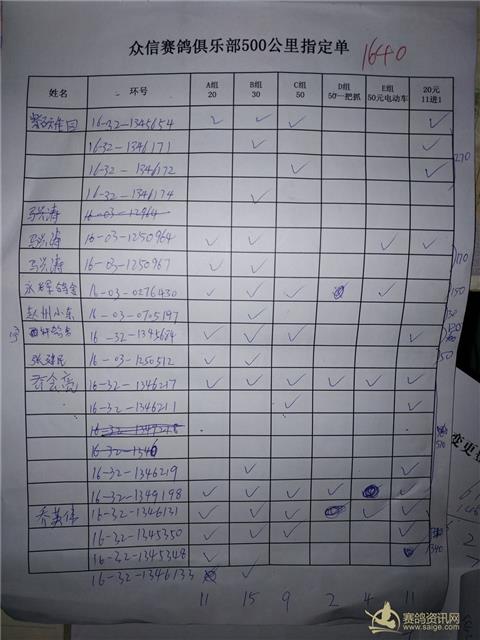 众信赛鸽俱乐部500公里指定单
1640
姓名 环号 A组 20 B组 30 C组 50 D组 50一把抓 E组 50元电动车 20元 11进1
16-32-1345654 ✓ ✓ ✓ ✓
16-32-1346171 ✓ ✓
16-32-1346172 ✓ ✓
270
16-32-1346174 ✓
马兴涛 16-03-12964
马兴涛 16-03-1250964 ✓ ✓ ✓ ✓
马兴涛 16-03-1250967 ✓ ✓
170
16-03-0276430 ✓ ✓ ✓ ✓
150
赵州小东 16-03-0705197 ✓
30
16-32-1345684 ✓ ✓ ✓ ✓
张建民 16-03-1250512 ✓ ✓
50
16-32-1346217 ✓ ✓ ✓ ✓ ✓ ✓
16-32-1346211 ✓ ✓
16-32-1346
16-32-1346219 ✓ ✓
16-32-1349198 ✓ ✓ ✓ ✓ ✓
16-32-1346131 ✓ ✓ ✓ ✓ ✓
16-32-1345350 ✓ ✓ ✓ ✓
16-32-1345348 ✓
340
16-32-1346133 ✓
11 15 9 2 4 11
变更
赛鸽资讯网
www.saige.com